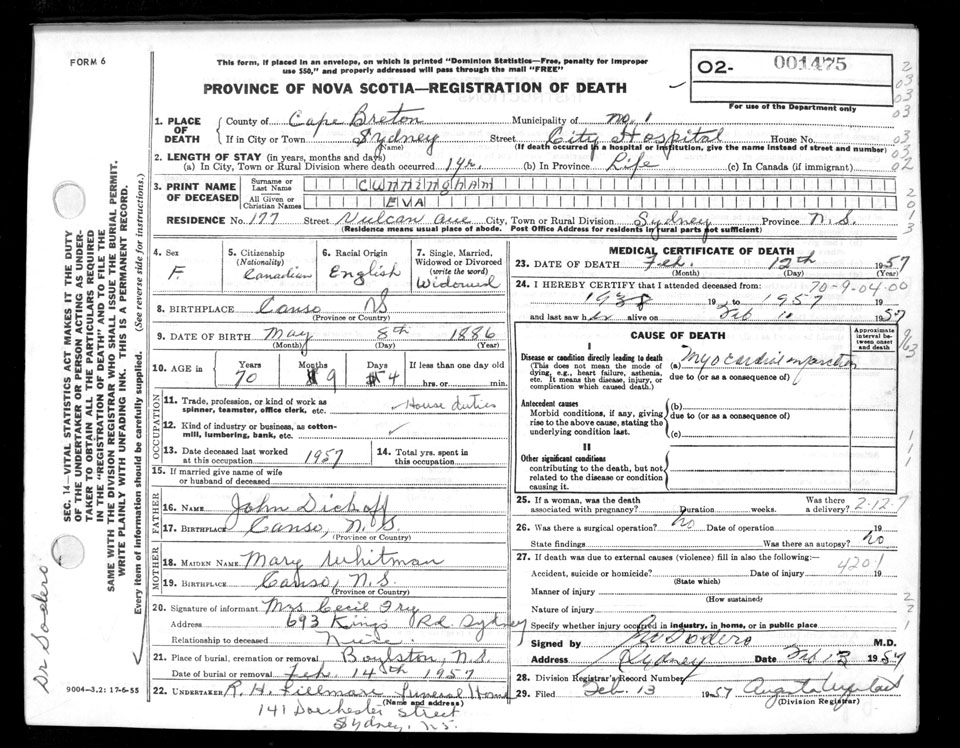 FORM 6
This form, if placed in an envelope, on which is printed "Dominion Statistics—Free, penalty for improper
use $50," and properly addressed will pass through the mail "FREE"
PROVINCE OF NOVA SCOTIA—REGISTRATION OF DEATH
O2- 001475
For use of the Department only
1. PLACE OF DEATH
County of Cape Breton Municipality of No. 1
If in City or Town Sydney Street City Hospital House No.
(Name) (If death occurred in a hospital or institution, give the name instead of street and number)
2. LENGTH OF STAY (in years, months and days)
(a) In City, Town or Rural Division where death occurred 1 yr. (b) In Province Life (c) In Canada (if immigrant)
3. PRINT NAME OF DECEASED
Surname or Last Name CUNNINGHAM
All Given or Christian Names EVA
RESIDENCE No. 177 Street Vulcan Ave City, Town or Rural Division Sydney Province N.S.
(Residence means usual place of abode. Post Office Address for residents in rural parts not sufficient)
4. Sex F.
5. Citizenship (Nationality) Canadian
6. Racial Origin English
7. Single, Married, Widowed or Divorced (write the word) Widowed
8. BIRTHPLACE Canso NS
(Province or Country)
9. DATE OF BIRTH May 8th 1886
(Month) (Day) (Year)
10. AGE IN Years 70 Months 9 Days 4 If less than one day old hrs. or min.
OCCUPATION
11. Trade, profession, or kind of work as spinner, teamster, office clerk, etc. House duties
12. Kind of industry or business, as cotton-mill, lumbering, bank, etc.
13. Date deceased last worked at this occupation 1957
14. Total yrs. spent in this occupation
15. If married give name of wife or husband of deceased
FATHER
16. NAME John Dickoff
17. BIRTHPLACE Canso, N.S.
(Province or Country)
MOTHER
18. MAIDEN NAME Mary Whitman
19. BIRTHPLACE Canso, N.S.
(Province or Country)
20. Signature of informant Mrs Cecil Fry
Address 693 Kings Rd. Sydney
Relationship to deceased
21. Place of burial, cremation or removal Boylston, N.S.
Date of burial or removal Feb. 14th 1957
22. UNDERTAKER R. H. Fillmore Funeral Home
(Name and Address)
141 Dorchester Street
Sydney, N.S.
MEDICAL CERTIFICATE OF DEATH
23. DATE OF DEATH Feb. 12th 1957
(Month) (Day) (Year)
24. I HEREBY CERTIFY that I attended deceased from: 70-9-04-00
1938 19 to 1957 19
and last saw her alive on Feb 10 1957
CAUSE OF DEATH
Approximate interval between onset and death
I
Disease or condition directly leading to death
(This does not mean the mode of dying, e.g., heart failure, asthenia, etc. It means the disease, injury, or complication which caused death.)
(a) Myocardial infarction
due to (or as a consequence of)
Antecedent causes
Morbid conditions, if any, giving rise to the above cause, stating the underlying condition last.
(b)
due to (or as a consequence of)
(c)
II
Other significant conditions
contributing to the death, but not related to the disease or condition causing it.
25. If a woman, was the death associated with pregnancy? Duration weeks. Was there a delivery? 2-12-7
26. Was there a surgical operation? no Date of operation 19
State findings Was there an autopsy? No
27. If death was due to external causes (violence) fill in also the following:—
4201
Accident, suicide or homicide? Date of injury 19
(State which)
Manner of injury
(How sustained)
Nature of injury
Specify whether injury occurred in industry, in home, or in public place
Signed by M.D.
Address Sydney Date Feb 13 1957
28. Division Registrar's Record Number
29. Filed Feb. 13 1957
(Division Registrar)
SEC. 14—VITAL STATISTICS ACT MAKES IT THE DUTY
OF THE UNDERTAKER OR PERSON ACTING AS UNDER-
TAKER TO OBTAIN ALL THE PARTICULARS REQUIRED
IN THE "REGISTRATION OF DEATH" AND TO FILE THE
SAME WITH THE DIVISION REGISTRAR WHO SHALL ISSUE THE BURIAL PERMIT.
WRITE PLAINLY WITH UNFADING INK. THIS IS A PERMANENT RECORD.
Every item of information should be carefully supplied. (See reverse side for instructions.)
9004—3.2: 17-6-55